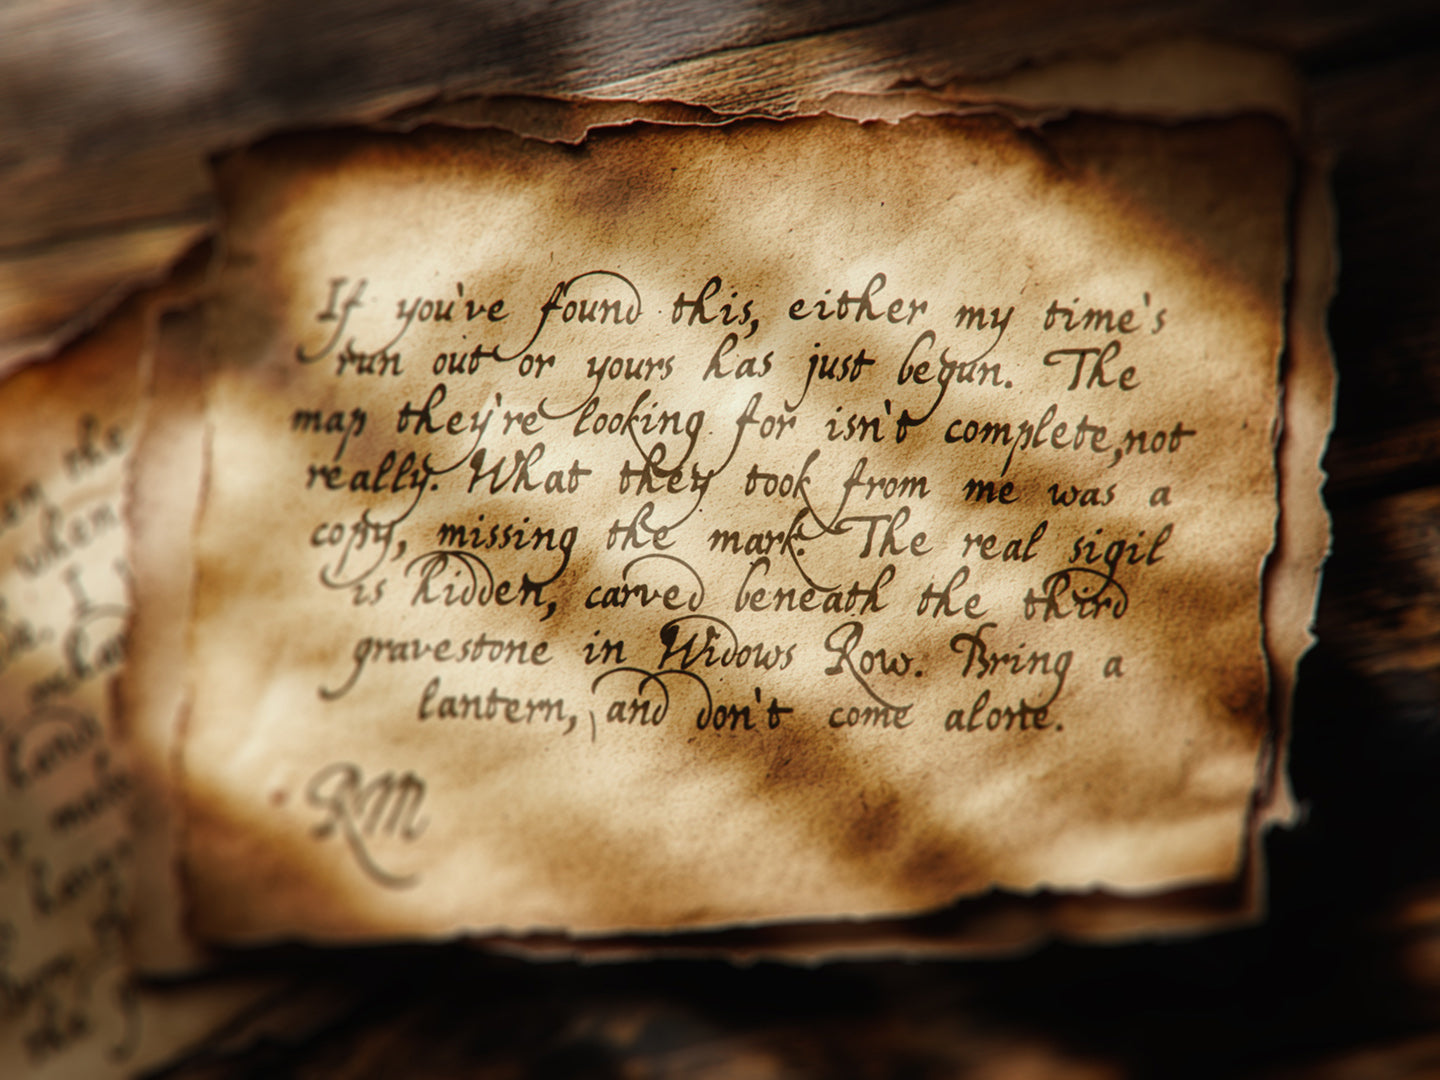 If you've found this, either my time's
run out or yours has just begun. The
map they're looking for isn't complete,not
really. What they took from me was a
copy, missing the mark. The real sigil
is hidden, carved beneath the third
gravestone in Widows Row. Bring a
lantern, and don't come alone.
RM